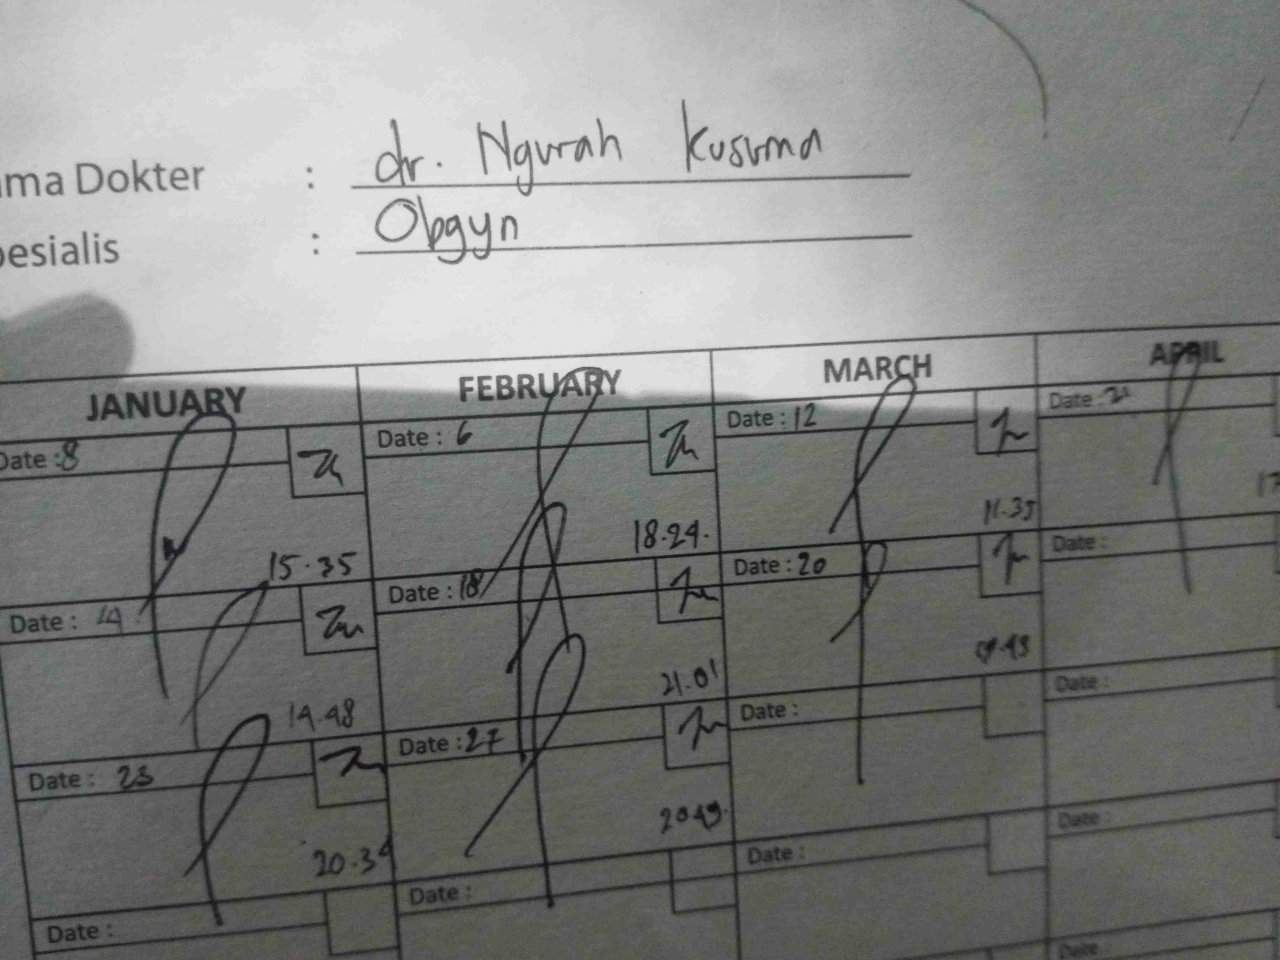 ama Dokter : dr. Ngurah Kusuma
pesialis : Obgyn
JANUARY FEBRUARY MARCH APRIL
Date : 8 Date : 6 Date : 12 Date :
15.35 18.24. 11.35 17
Date : 14 Date : 18 Date : 20 Date :
14.48 21.01
Date : 23 Date : 27 Date : Date :
20.34 20.49.
Date : Date : Date : Date :
Date :